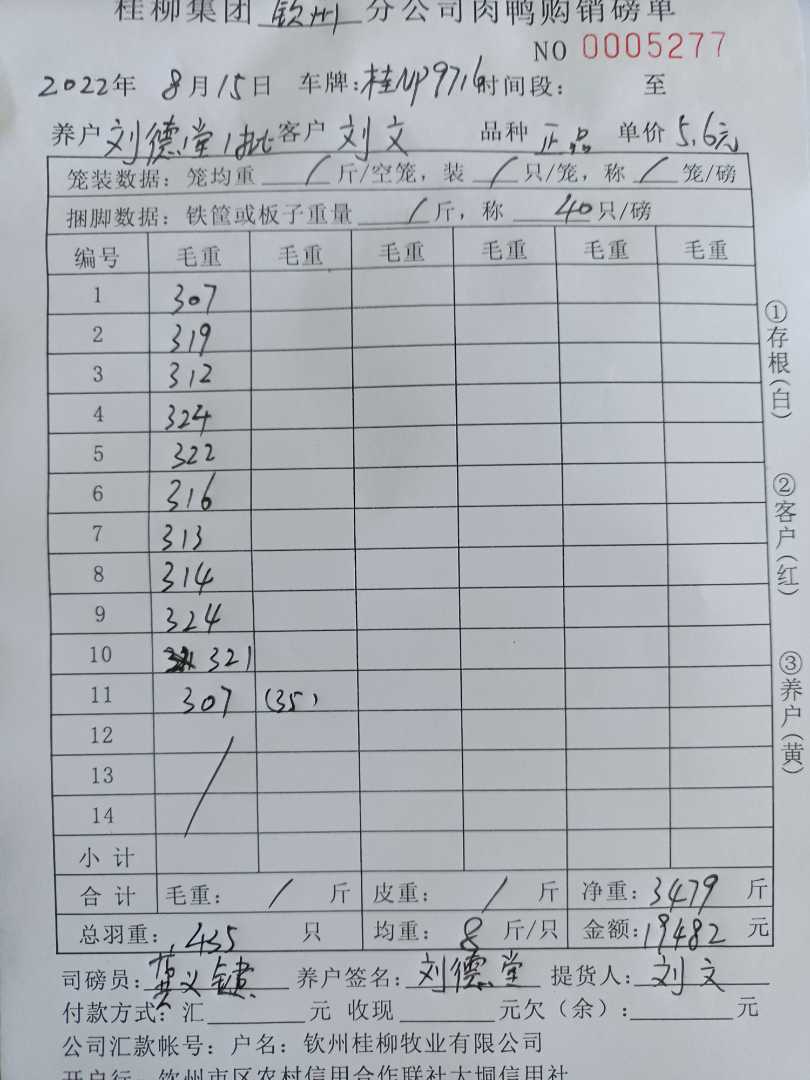 桂柳集团 钦州 分公司肉鸭购销磅单
NO 0005277
2022年 8月15日 车牌:桂NP9716 时间段: 至
养户 刘德堂 1批 客户 刘文 品种 正品 单价 5.6元
笼装数据: 笼均重 / 斤/空笼, 装 / 只/笼, 称 / 笼/磅
捆脚数据: 铁筐或板子重量 / 斤, 称 40 只/磅
编号 毛重 毛重 毛重 毛重 毛重 毛重
1 307
2 319
3 312
4 324
5 322
6 316
7 313
8 314
9 324
10 321
11 307 (35)
12
13
14
小计
合计 毛重: / 斤 皮重: / 斤 净重: 3479 斤
总羽重: 435 只 均重: 8 斤/只 金额: 19482 元
司磅员: 义键 养户签名: 刘德堂 提货人: 刘文
付款方式: 汇 元 收现 元欠(余): 元
公司汇款帐号: 户名: 钦州桂柳牧业有限公司
开户行 钦州市区农村信用合作联社大垌信用社
①存根(白)
②客户(红)
③养户(黄)